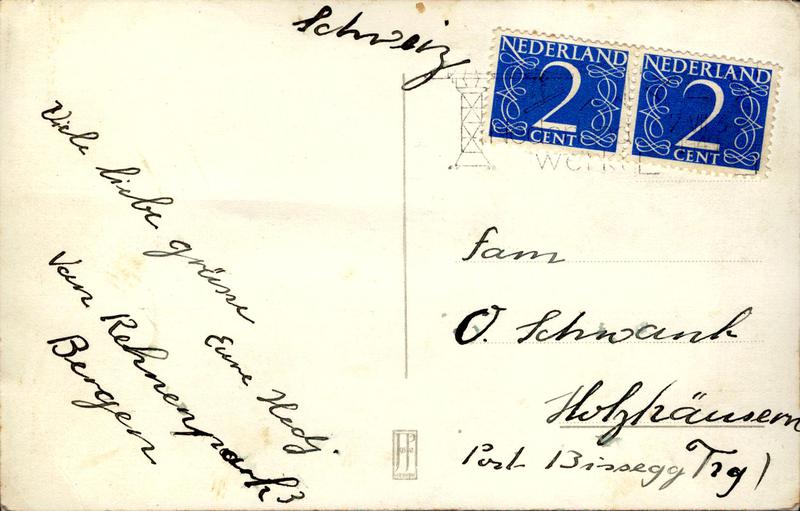 Schweiz
NEDERLAND
2
CENT
NEDERLAND
2
CENT
Viele liebe grüsse
Eure Hedy.
Van Rehnenpark 3
Bergen
Fam
O. Schwank
Holzhäusern
Post Bissegg Trg)